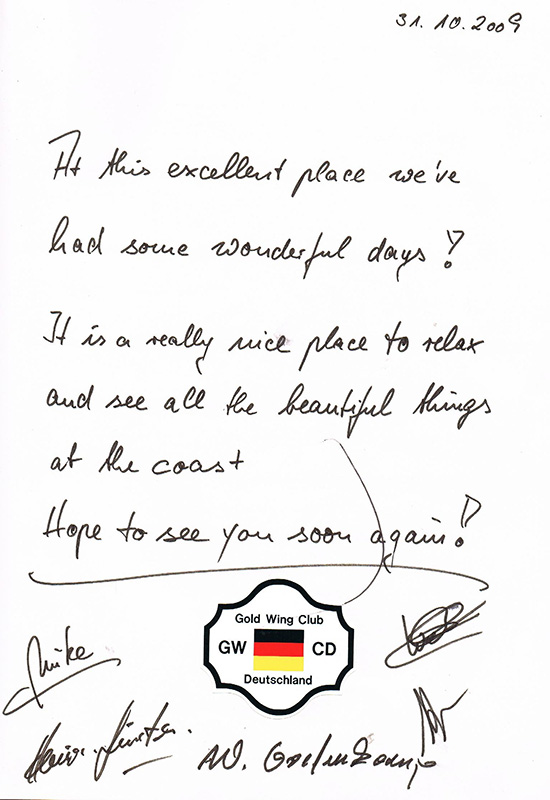 31. 10. 2009
At this excellent place we've
had some wonderful days!
It is a really nice place to relax
and see all the beautiful things
at the coast
Hope to see you soon again!
Gold Wing Club
GW CD
Deutschland
Mike